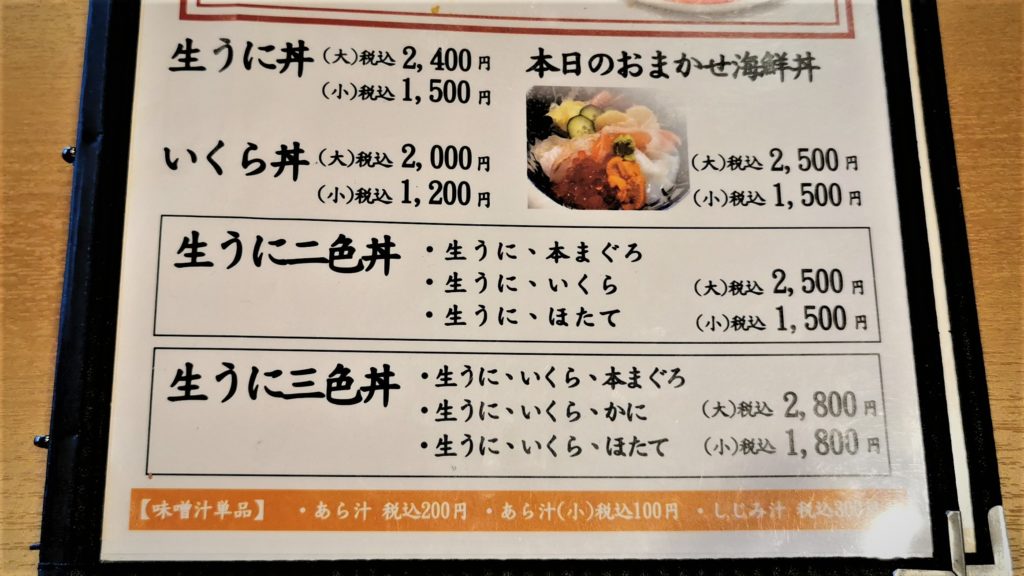 生うに丼 (大)税込 2,400円
(小)税込 1,500円
いくら丼 (大)税込 2,000円
(小)税込 1,200円
本日のおまかせ海鮮丼
(大)税込 2,500円
(小)税込 1,500円
生うに二色丼
・生うに、本まぐろ
・生うに、いくら
・生うに、ほたて
(大)税込 2,500円
(小)税込 1,500円
生うに三色丼
・生うに、いくら、本まぐろ
・生うに、いくら、かに
・生うに、いくら、ほたて
(大)税込 2,800円
(小)税込 1,800円
【味噌汁単品】 ・あら汁 税込200円 ・あら汁(小)税込100円 ・しじみ汁 税込